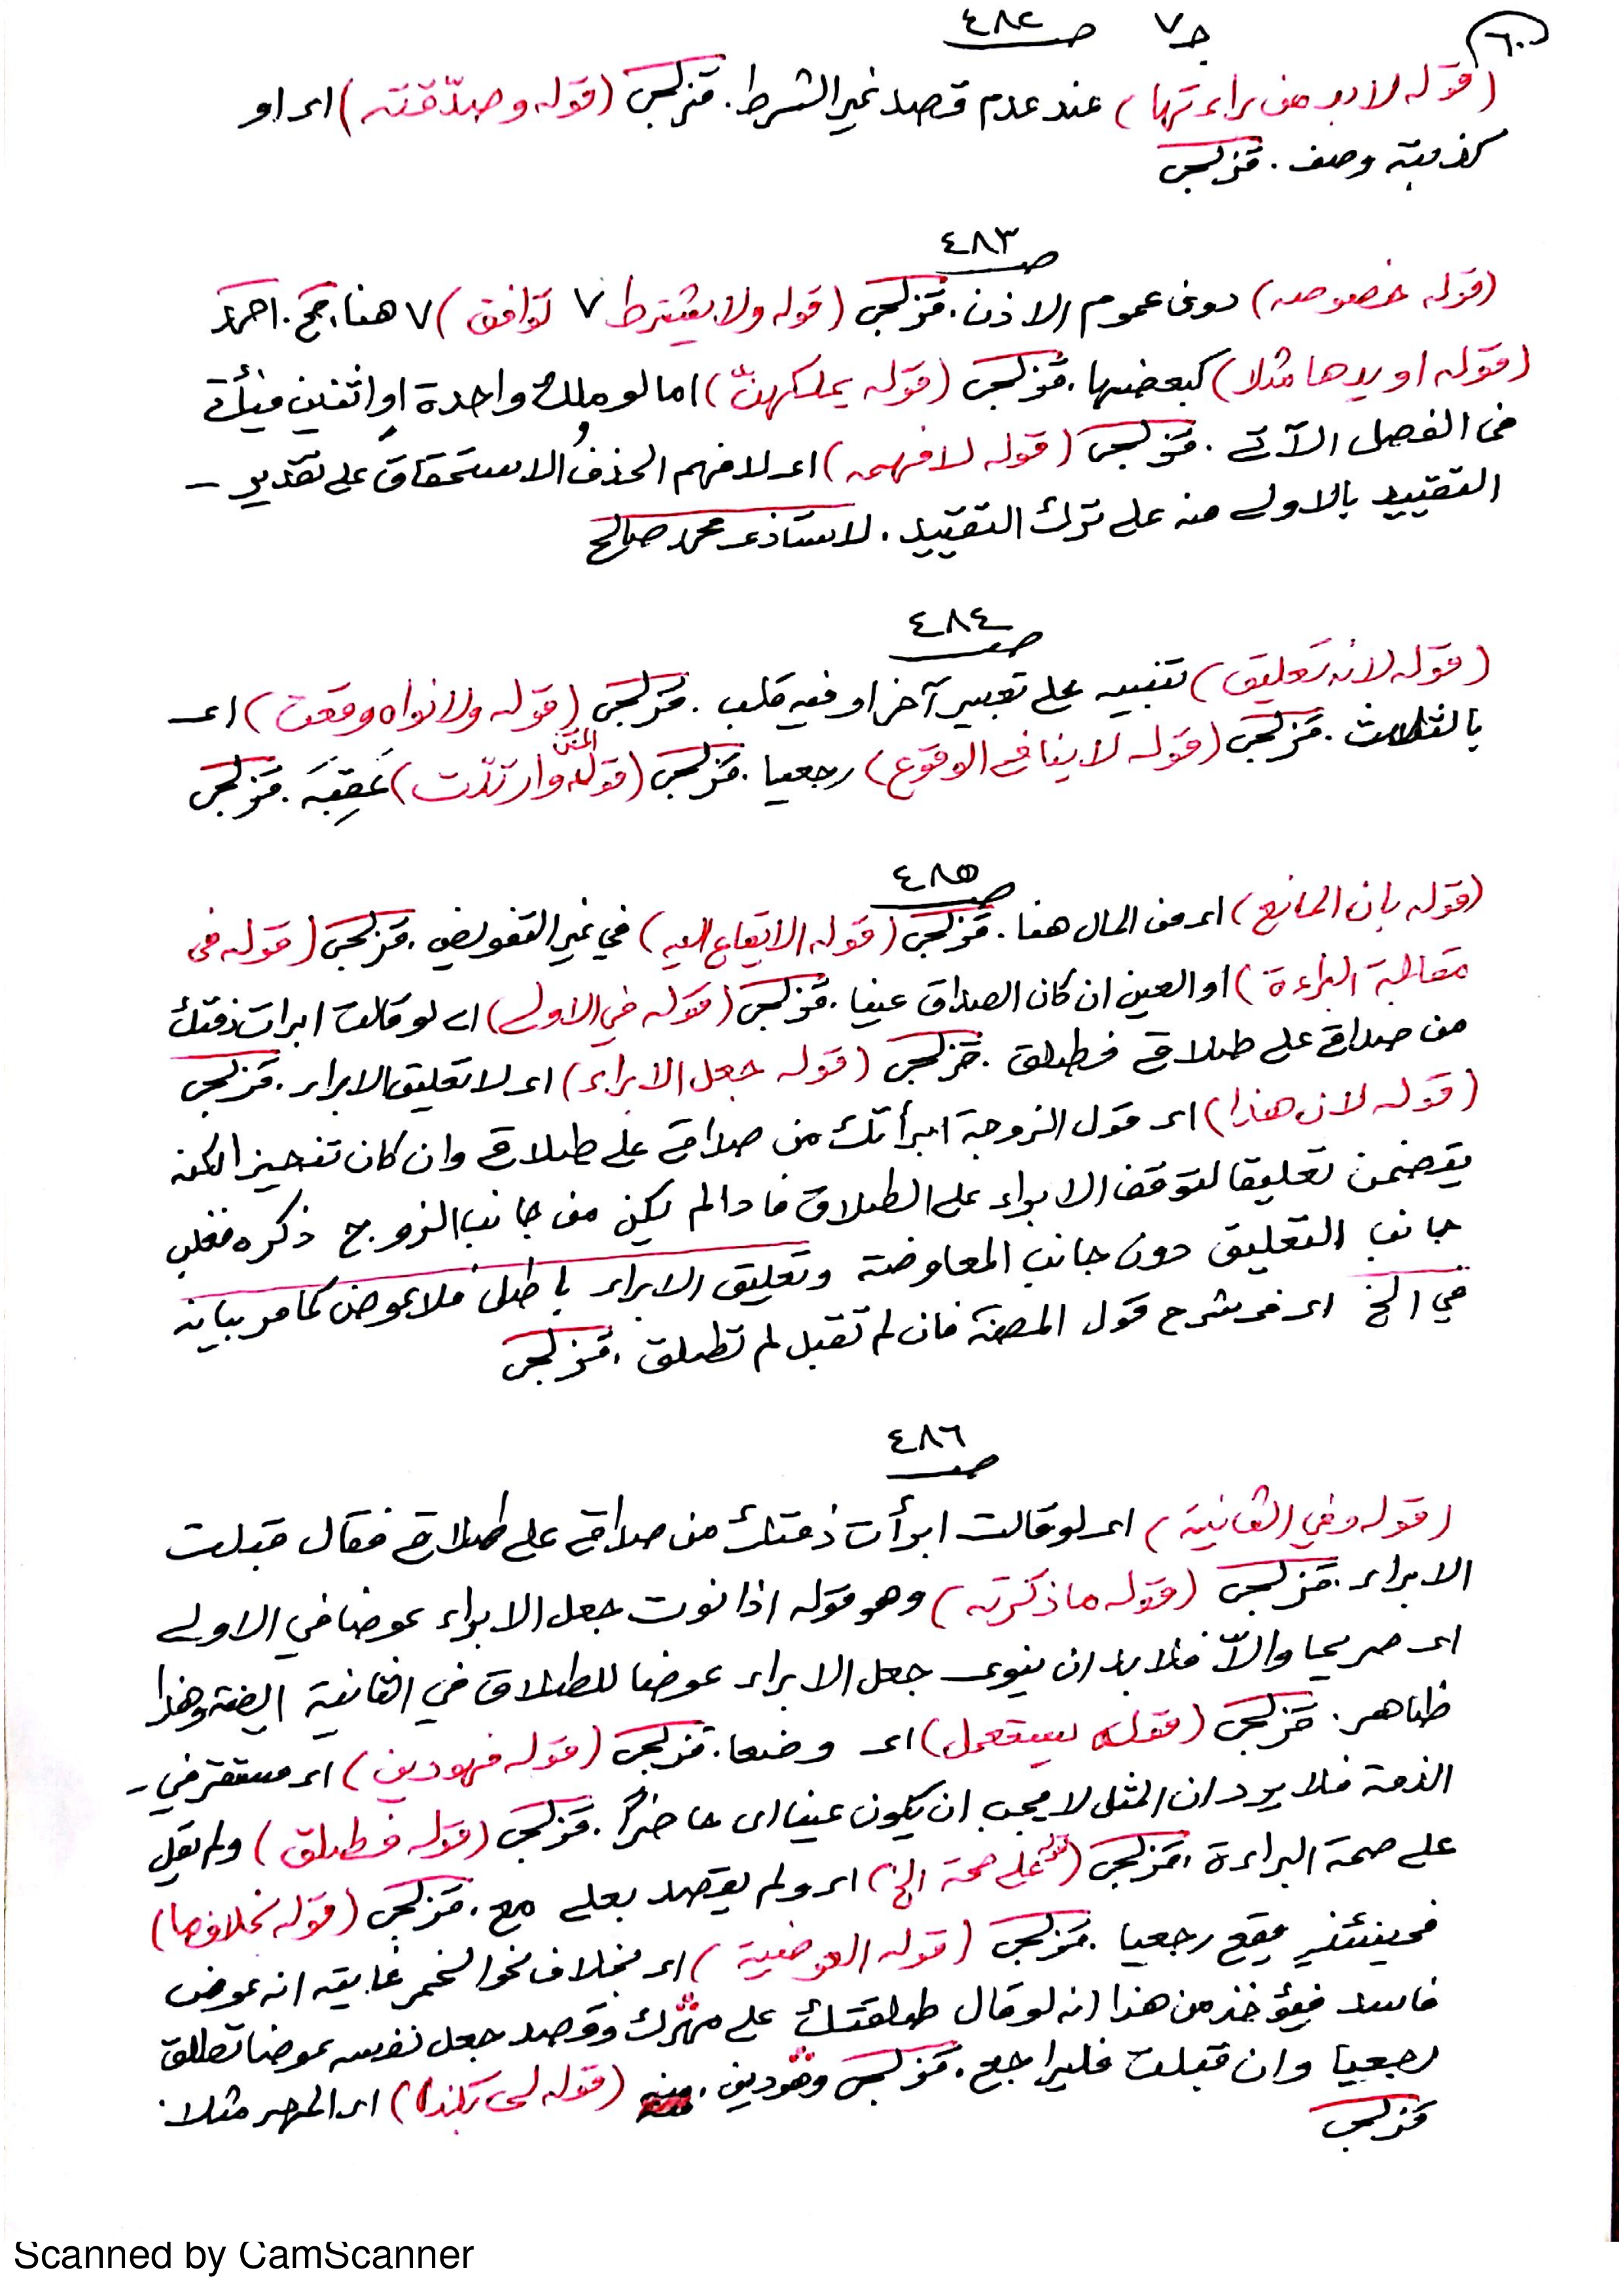 ٦٠
ج٧ ص ٤٨٢
(قوله لا بد من براءتها) عند عدم قصد غير الشرط. قزلجى (قوله وصدّقته) اى او
كذبته وصف. قزلجى
ص ٤٨٣
(قوله خصوصه) دون عموم الاذن. قزلجى (قوله ولا يشترط ٧ توافق) ٧ هنا. جج. احمد
(قوله او يدها مثلا) كبعضها. قزلجى (قوله يملكهنّ) اما لو ملك واحدة او اثنين فيأتى
فى الفصل الآتى. قزلجى (قوله لا فهمه) اى لا فهم الحذف الاستحقاق على تقدير -
التقييد بالاولى منه على ترك التقييد. لاستاذى محمد صالح
ص ٤٨٤
(قوله لانه تعليق) تنبيه على تعبير آخر او فيه قلب. قزلجى (قوله ولا نواه وقعت) اى
بالثلاث. قزلجى (قوله لا ينافى الوقوع) رجعيا. قزلجى (قوله المتن وارتدّت) عَقِبَه. قزلجى
ص ٤٨٥
(قوله بان المانع) اى من المال هنا. قزلجى (قوله الايقاع اليه) في غير التفويض. قزلجى (قوله فى
مقابلة البراءة) او العين ان كان الصداق عينا. قزلجى (قوله في الاولى) اى لو قالت ابرات ذمتك
من صداقى على طلاقى فطلق. قزلجى (قوله جعل الابراء) اى لا تعليق الابراء. قزلجى
(قوله لان هذا) اى قول الزوجة ابرأتك من صداقى على طلاقى وان كان تنجيزا لكنه
يتضمن تعليقا لتوقف الابراء على الطلاق فاذا لم يكن من جانب الزوج ذكره فغلب
جانب التعليق دون جانب المعاوضة وتعليق الابراء باطل فلا عوض كما مر بيانه
في الخ اى فى شرح قول المصنف فان لم تقبل لم تطلق. قزلجى
ص ٤٨٦
(قوله وفي الثانية) اى لو قالت ابرأت ذمتك من صداقى على طلاقى فقال قبلت
الابراء. قزلجى (قوله ما ذكرته) وهو قوله اذا نوت جعل الابراء عوضا في الاولى
اى صريحا والاّ فلا بد ان ينوى جعل الابراء عوضا للطلاق في الثانية ايضا وهذا
ظاهر. قزلجى (قوله يستعمل) اى وضعا. قزلجى (قوله فهو دين) اى مستقر في -
الذمة فلا يرد ان المثل لا يجب ان يكون عينا اى حاضرًا. قزلجى (قوله فطلق) ولم يقل
على صحة البراءة. قزلجى (قوله على صحة الخ) اى ولم يقصد بعلى مع. قزلجى (قوله بخلافها)
فحينئذ يقع رجعيا. قزلجى (قوله العوضية) اى بخلاف نحو الخمر غايته انه عوض
فاسد فيؤخذ من هذا انه لو قال طلقتك على مهرك وقصد جعل نفسه عوضا تطلق
رجعيا وان قبلت فليراجع. قزلجى وهو دين. منه (قوله اى المهر مثلا.
قزلجى
Scanned by CamScanner